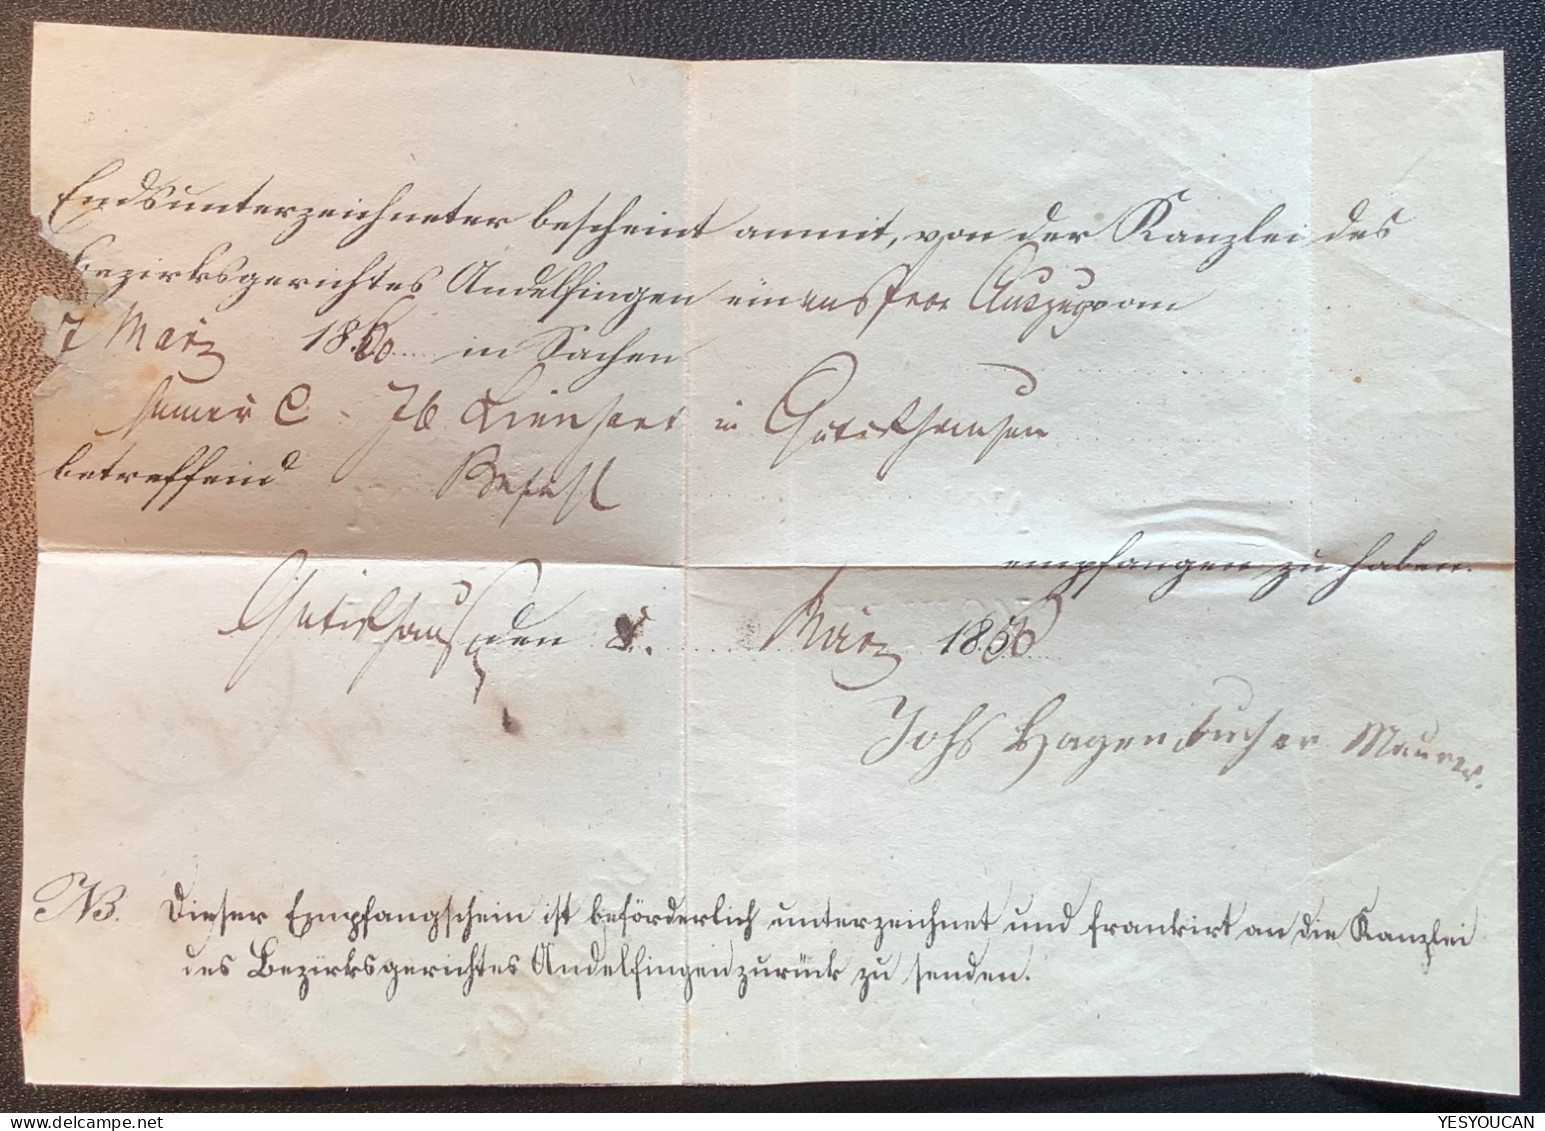 Endsunterzeichneter bescheint anmit, von der Kanzlei des
Bezirksgerichtes Andelfingen ein Auszug vom
7 März 1860 in Sachen
C. - Jb Lienhart in Gütikhausen
betreffend Befehl
empfangen zu haben.
Gütikhausen den 8. März 1860
Johs Hagenbucher Maurer.
NB. Dieser Empfangschein ist beförderlich unterzeichnet und frankirt an die Kanzlei
des Bezirksgerichtes Andelfingen zurück zu senden.
YESYOUCAN